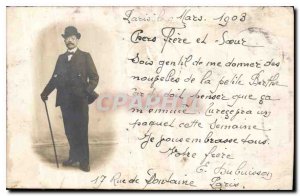 Paris le Mars. 1903
Chers Frère et Sœur
Sois gentil de me donner des
nouvelles de la petite Berthe
doit penser que ça
m'ennuie
paquet cette semaine
Je vous embrasse tous.
Votre frère
E. Dubuisson
17 Rue de Fontaine Paris.
CPArama.com